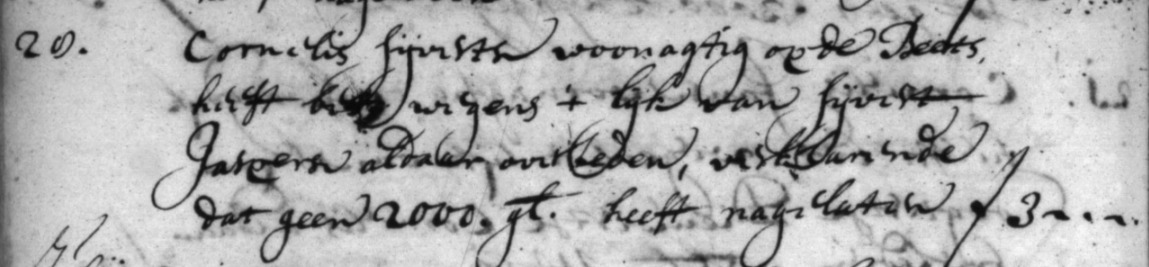 20. Cornelis sijvertsn woonagtig op de Beets,
heeft wegens t lijk van sijvert
Jaspersn aldaar overleden, verklarende
dat geen 2000. gl. heeft nagelaten 3 - - -